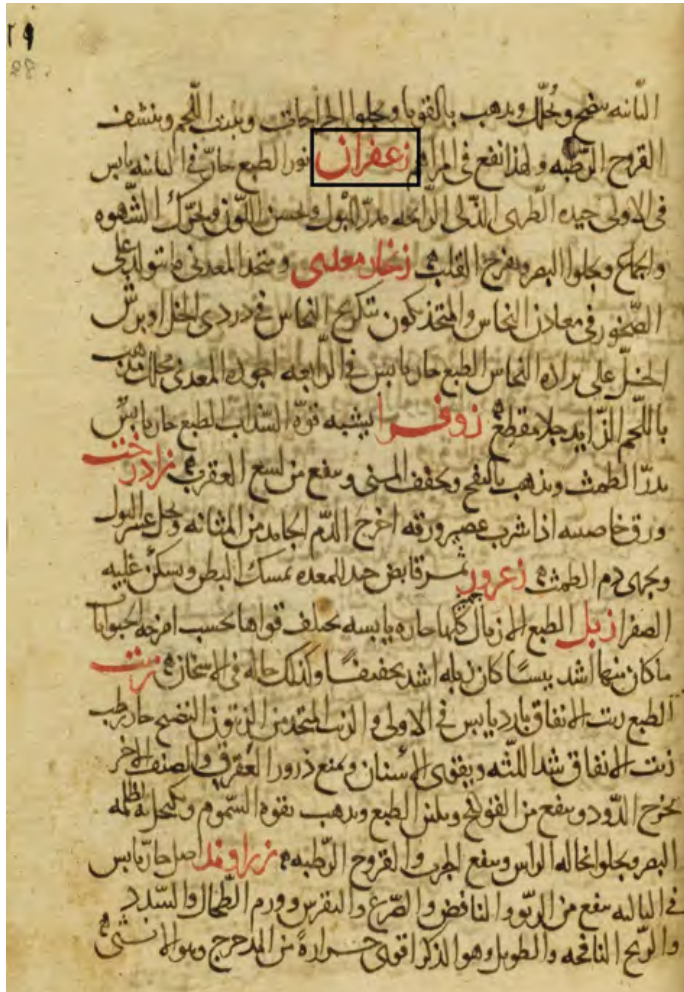 الثانيه ينضج ويحلل ويذهب بالقوبا ويجلوا الجراحات وينبت اللحم وينشف
القروح الرطبه ولهذا نفع فى المراهم زعفران نور الطبع حار فى الثانيه يابس
فى الاولى جيده الطرى الذكى الرائحه يدر البول ويحسن اللون ويحرك الشهوه
والجماع ويجلوا البصر ويفرح القلب زنجار معدنى ومتخذ المعدنى ما يتولد على
الصخور فى معادن النحاس والمتخذ يكون بتكريج النحاس فى دردى الخل او برش
الخل على براده النحاس الطبع حار يابس فى الرابعه اجوده المعدنى محلل يذهب
باللحم الزايد جلا مقطع زوفرا يشبه قوة السذاب الطبع حار يابس
يدر الطمث ويذهب بالنفخ ويجفف المنى وينفع من لسع العقرب زادرخت
ورق خاصيته اذا شرب عصير ورقه اخرج الدم الجامد من المثانه ويحل عسر البول
ويجرى دم الطمث زعرور ثمر قابض جيد للمعده يمسك البطن ويسكن غلبه
الصفرا زبل الطبع الازبال كلها حاره يابسه يختلف قواها بحسب امزجه الحيوانات
ما كان منها اشد يبسًا كان زبله اشد تجفيفًا وكذلك حاله فى الاسخان زيت
الطبع زيت الانفاق بارد يابس فى الاولى والزيت المتخذ من الزيتون النضيج حار رطب
زيت الانفاق شد اللثه ويقوى الاسنان ويمنع درور العرق والصنف الاخر
يخرج الدود وينفع من القولنج ويلين الطبع ويذهب بقوه السموم ويكتحل به لظلمه
البصر ويجلوا نخاله الراس وينفع الجرب والقروح الرطبه زراوند اصل حار يابس
فى الثالثه ينفع من الربو والنافض والصرع والنقرس وورم الطحال والسدد
والريح النافخه والطويل وهو الذكر اقوى حراره من المدحرج وهو الانثى